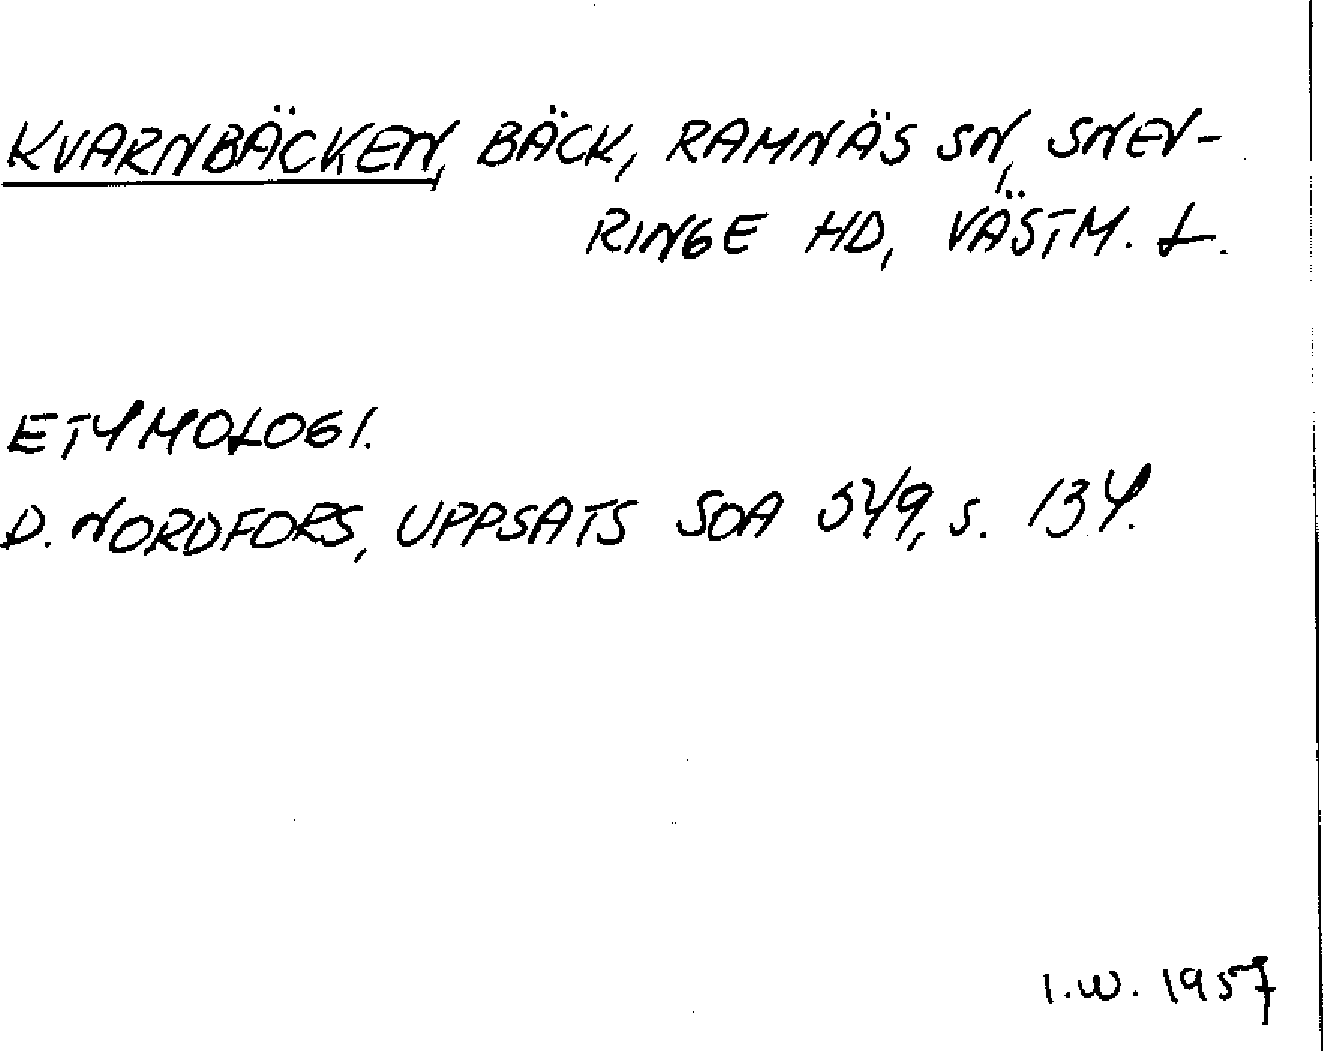 KVARNBÄCKEN, BÄCK, RAMNÄS SN, SNEV-
RINGE HD, VÄSTM. L.
ETYMOLOGI.
D. NORDFORS, UPPSATS SOA 549, s. 134.
I.W. 1957